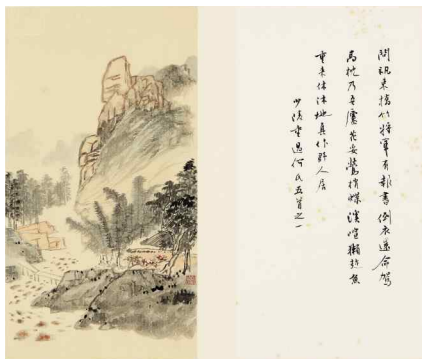 問訊東橋竹將軍有報書倒衣還命駕
高枕乃吾廬花妥鶯捎蝶溪喧獺趁魚
重來休沐地真作野人居
少陵重過何氏五首之一